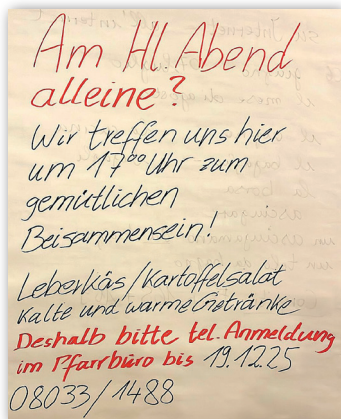 Am Hl. Abend
alleine?
Wir treffen uns hier
um 17⁰⁰ Uhr zum
gemütlichen
Beisammensein!
Leberkäs/Kartoffelsalat
Kalte und warme Getränke
Deshalb bitte tel. Anmeldung
im Pfarrbüro bis 19.12.25
08033/1488